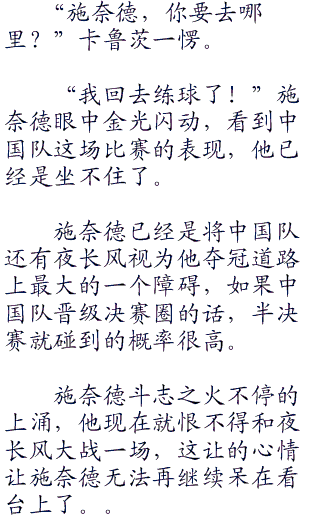 “施奈德，你要去哪
里？”卡鲁茨一愣。
“我回去练球了！”施
奈德眼中金光闪动，看到中
国队这场比赛的表现，他已
经是坐不住了。
施奈德已经是将中国队
还有夜长风视为他夺冠道路
上最大的一个障碍，如果中
国队晋级决赛圈的话，半决
赛就碰到的概率很高。
施奈德斗志之火不停的
上涌，他现在就恨不得和夜
长风大战一场，这让的心情
让施奈德无法再继续呆在看
台上了。。